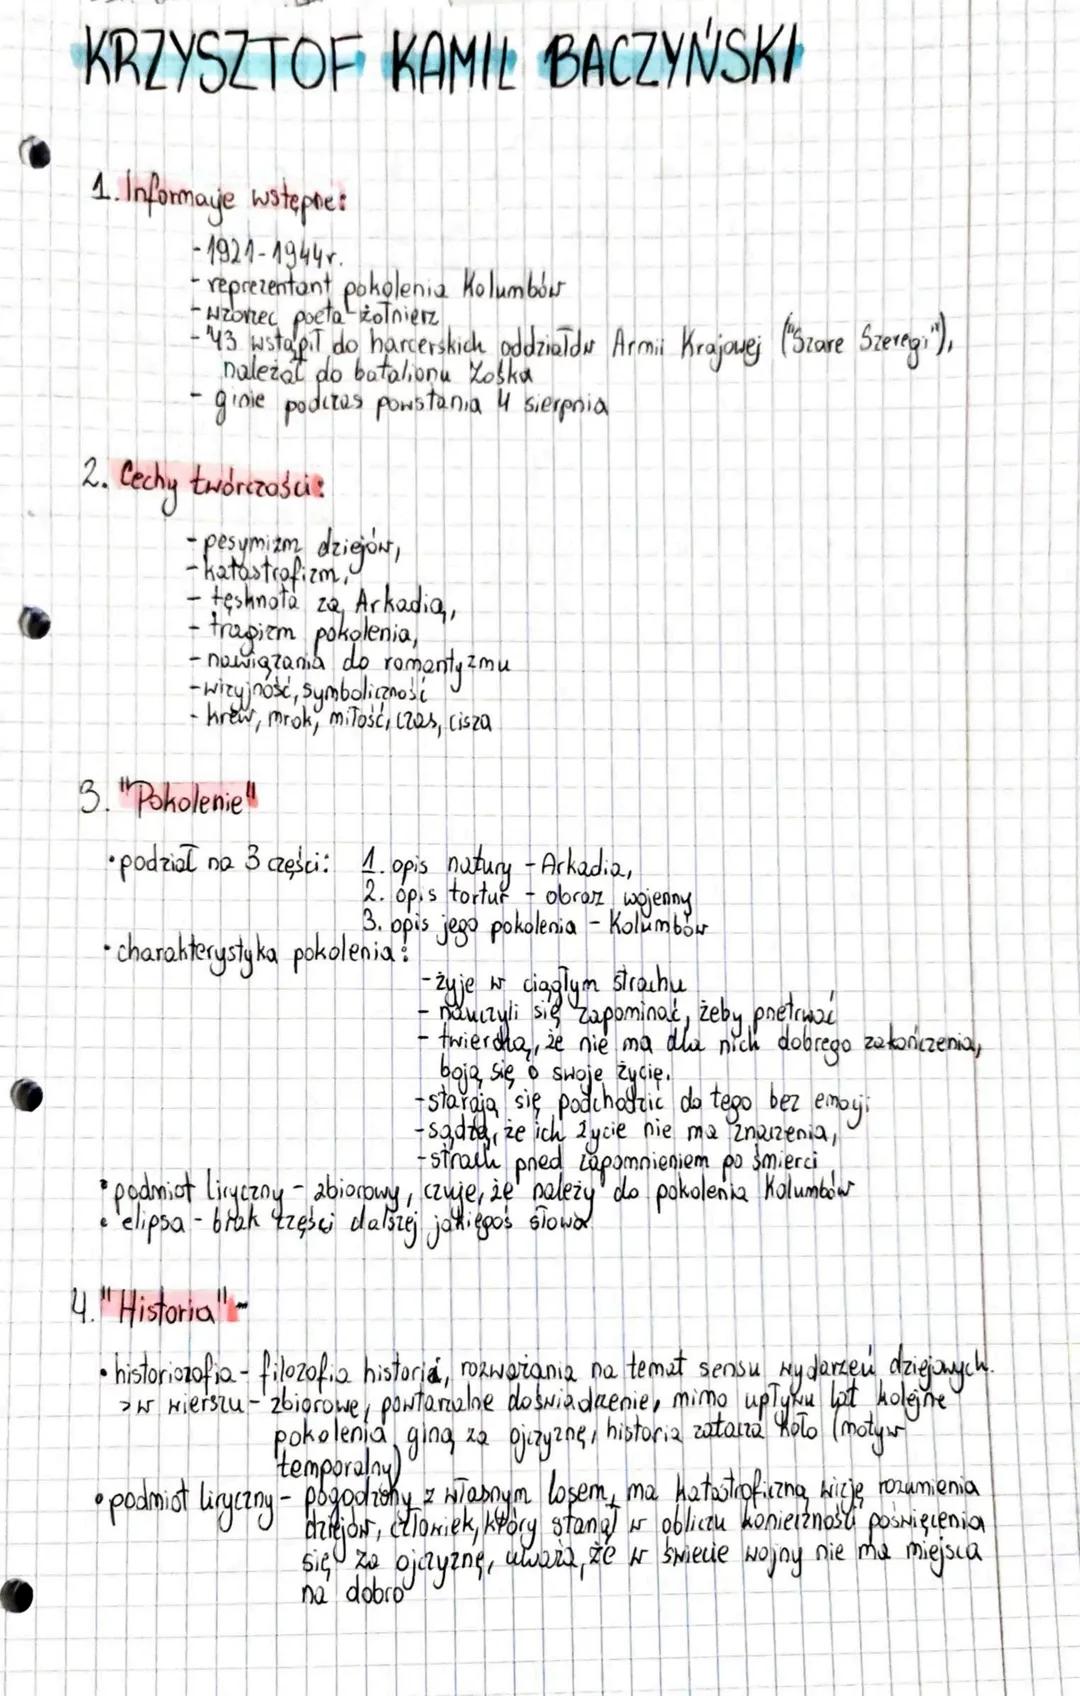 KRZYSZTOF KAMIL BACZYŃSKI
1. Informacje wstępne:
- 1921-1944r.
- reprezentant pokolenia Kolumbów
- wzorzec poeta-żołnierz
- '43 wstąpił do harcerskich oddziałów Armii Krajowej ("Szare Szeregi"),
należał do batalionu Zośka
- ginie podczas powstania 4 sierpnia
2. Cechy twórczości:
- pesymizm dziejów,
- katastrofizm,
- tęsknota za Arkadią,
- tragizm pokolenia,
- nawiązania do romantyzmu
- wizyjność, symboliczność
- krew, mrok, miłość, czas, cisza
3. "Pokolenie"
• podział na 3 części: 1. opis natury - Arkadia,
2. opis tortur - obraz wojenny
3. opis jego pokolenia - Kolumbów
• charakterystyka pokolenia:
- żyje w ciągłym strachu
- nauczyli się zapominać, żeby przetrwać
- twierdzą, że nie ma dla nich dobrego zakończenia,
boją się o swoje życie.
- starają się podchodzić do tego bez emocji
- sądzą, że ich życie nie ma znaczenia,
- strach przed zapomnieniem po śmierci
• podmiot liryczny - zbiorowy, czuje, że należy do pokolenia Kolumbów
• elipsa - brak części dalszej jakiegoś słowa
4. "Historia" -
• historiozofia - filozofia historii, rozważania na temat sensu wydarzeń dziejowych.
> w wierszu - zbiorowe, powtarzalne doświadczenie, mimo upływu lat kolejne
pokolenia giną za ojczyznę, historia zatacza koło (motyw
temporalny)
• podmiot liryczny - pogodzony z własnym losem, ma katastroficzną wizję rozumienia
dziejów, człowiek, który stanął w obliczu konieczności poświęcenia
się za ojczyznę, uważa, że w świecie wojny nie ma miejsca
na dobro